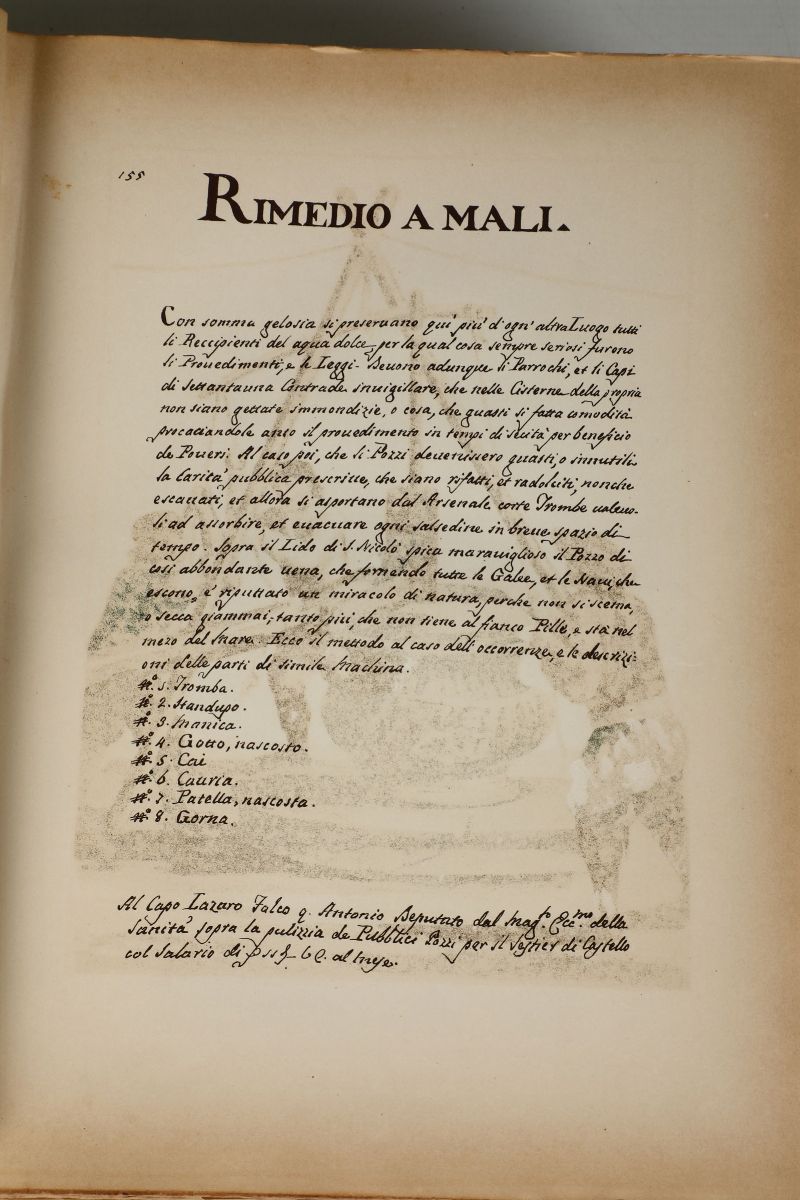 155
RIMEDIO A MALI.
Con somma gelosia si preseruano quì più d'ogn'altra Luogo tutti
li Reccipienti del aqua dolce, per la qual cosa sempre seriosi furono
li Prouedimenti, e le Leggi. Deuono adunque li Parrochi, et li Capi
di Settantauna Contrade inuigillare, che nelle Cisterne della propria
non siano gettate immondizie, o cosa, che guasti si fatta comodità
procacciandole anco il prouedimento in tempi di secità per beneficio
de Poueri. Al caso poi, che li Pozzi deuenissero guasti, o innutili
la Carità pubblica prescriue, che siano rifatti, et radolciti, nonche
escauati, et allora si asportano dal Arsenale corte Trombe ualeuo-
li ad assorbire, et euacuare ogni salsedine in breue spazio di
tempo. Sopra il Lido di S. Nicolò spica marauiglioso il Pozzo di
così abbondante uena, che fornendo tutte le Galee, et le Naui, che
escono, è riputtato un miracolo di natura, perche non si scema,
o secca giammai, tanto più, che non tiene al fianco Pille, e stà nel
mezo del Mare. Ecco il mettodo al caso dell'occorrenze, e le descrizi-
oni delle parti di simile Machina.
N.º 1. Tromba.
N.º 2. Standuo.
N.º 3. Manica.
N.º 4. Gotto, nascosto.
N.º 5. Cai
N.º 6. Cauria.
N.º 7. Patella, nascosta.
N.º 8. Gorna.
Al Capo Lazaro Falco q. Antonio Deputato dal Mag.to Ecc.mo della
Sanità sopra la pulizia de Pubblici Pozzi per il Sestier di Castello
col Salario di al Mese.